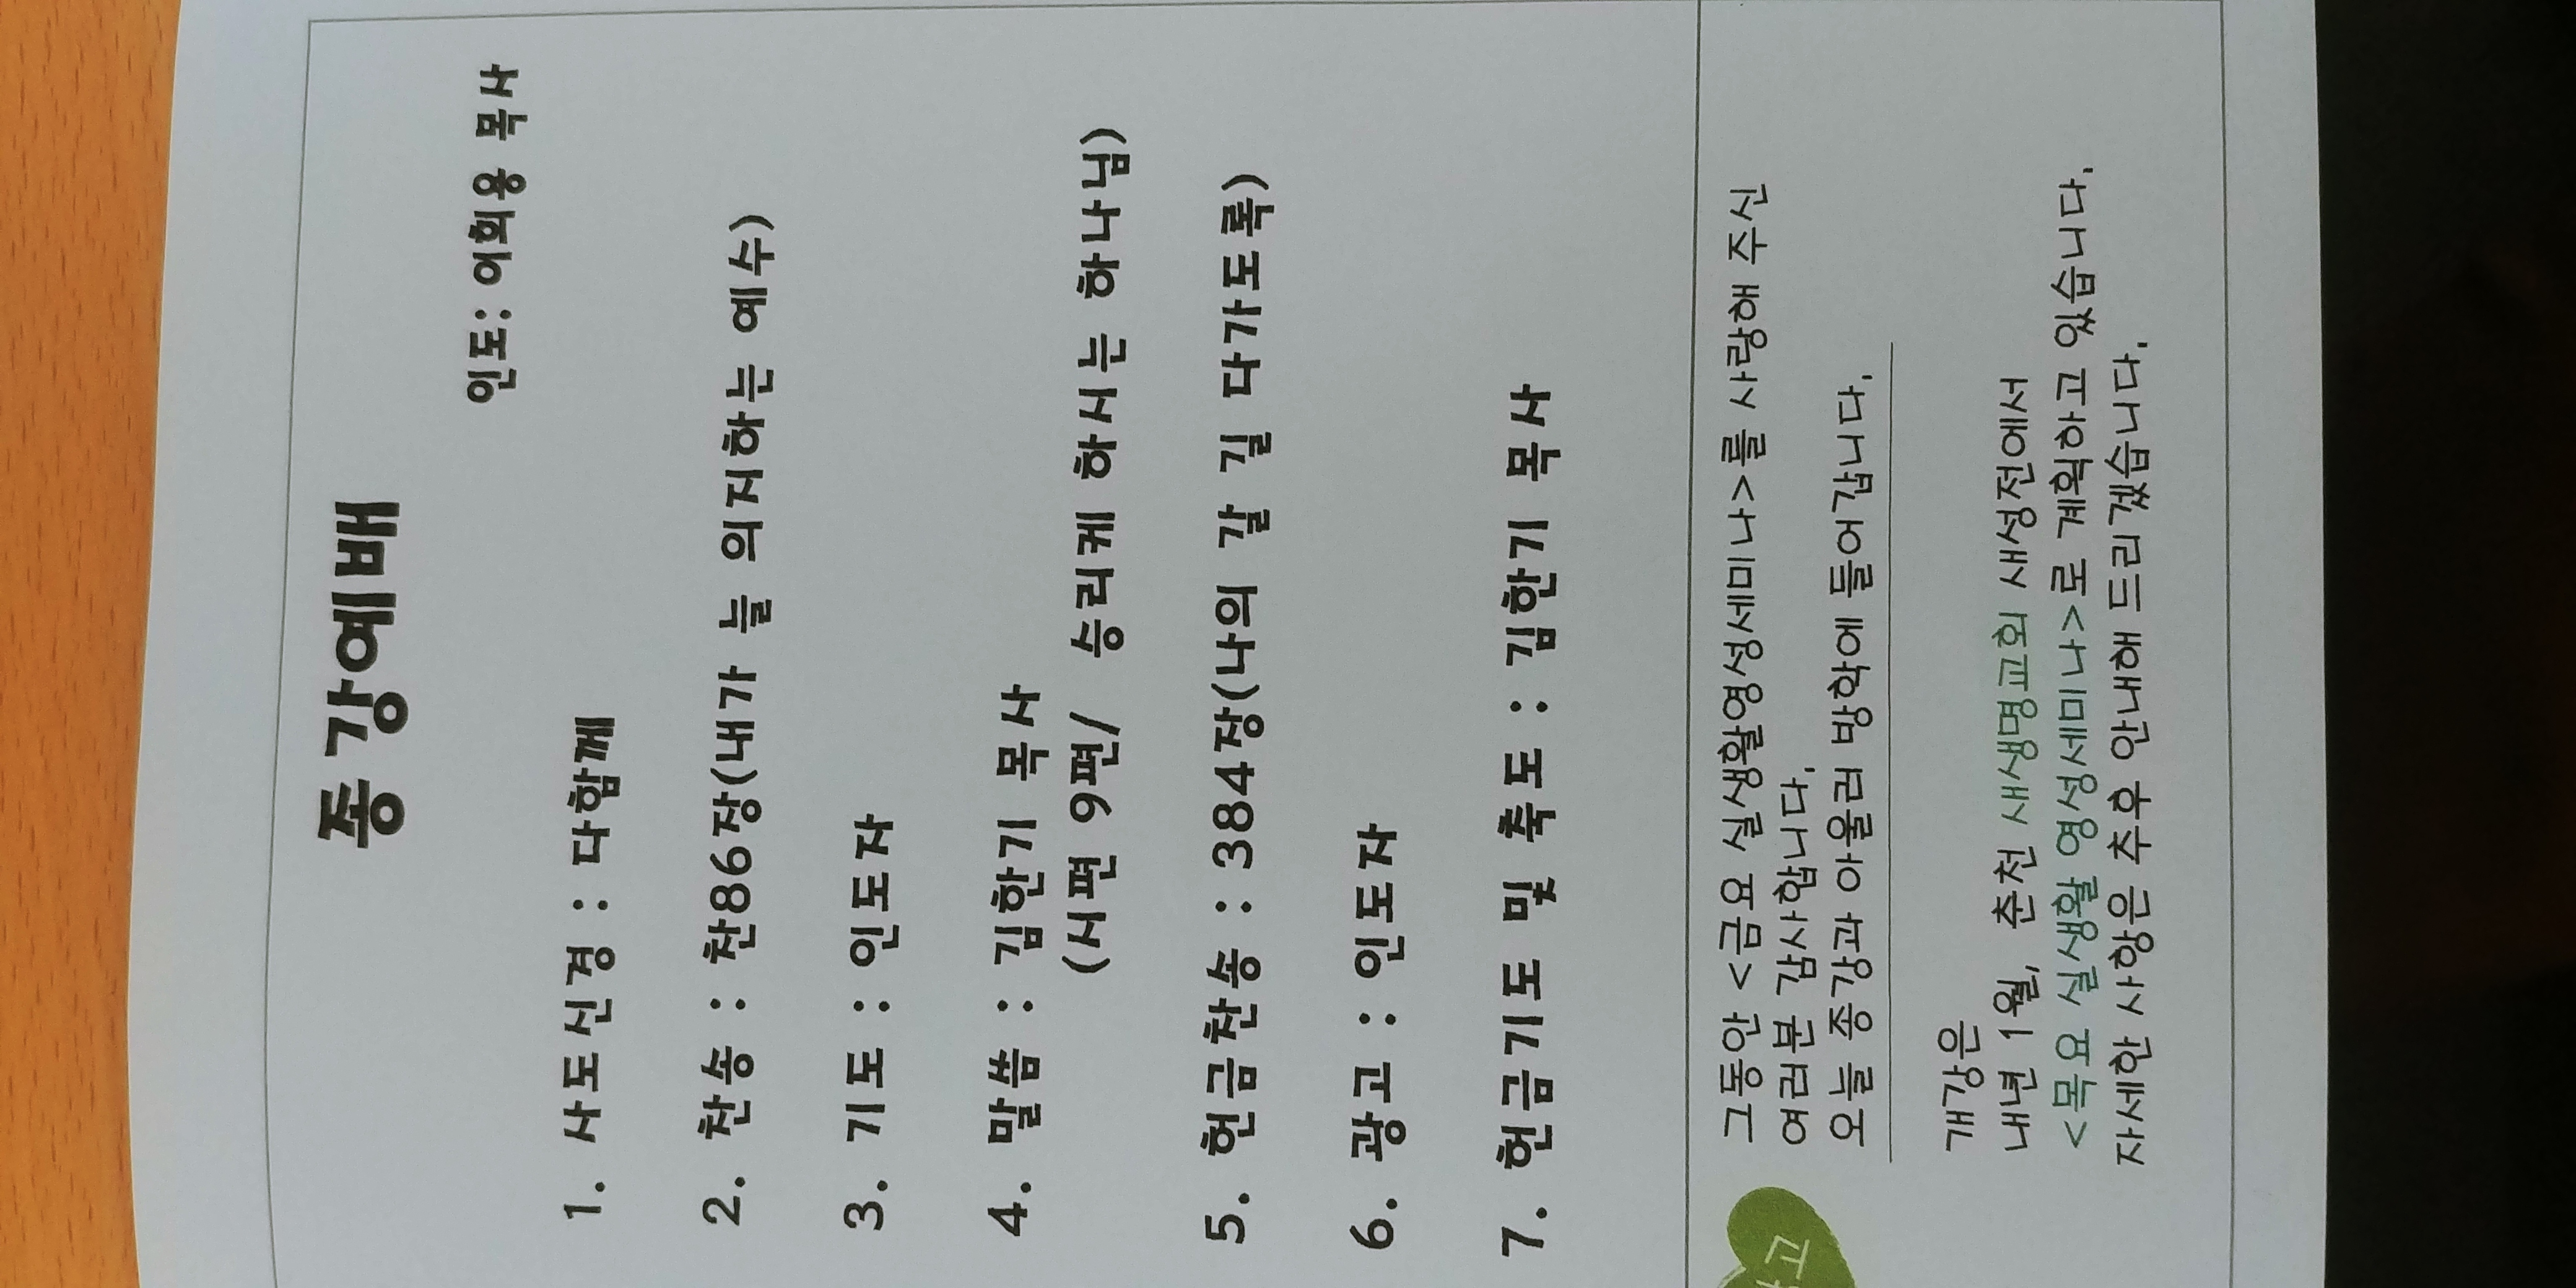 종강예배
인도: 어희용 목사
1. 사도신경 : 다함께
2. 찬송 : 찬86장(내가 늘 의지하는 예수)
3. 기도 : 인도자
4. 말씀 : 김한기 목사
(시편 9편/ 승리케 하시는 하나님)
5. 헌금찬송 : 384장(나의 갈 길 다가도록)
6. 광고 : 인도자
7. 헌금기도 및 축도 : 김한기 목사
그동안 <금요 실생활영성세미나>를 사랑해 주신
여러분 감사합니다.
오늘 종강과 아울러 방학에 들어갑니다.
개강은
내년 1월, 춘천 새생명교회 새성전에서
<목요 실생활 영성세미나>로 계획하고 있습니다.
자세한 사항은 추후 안내해 드리겠습니다.